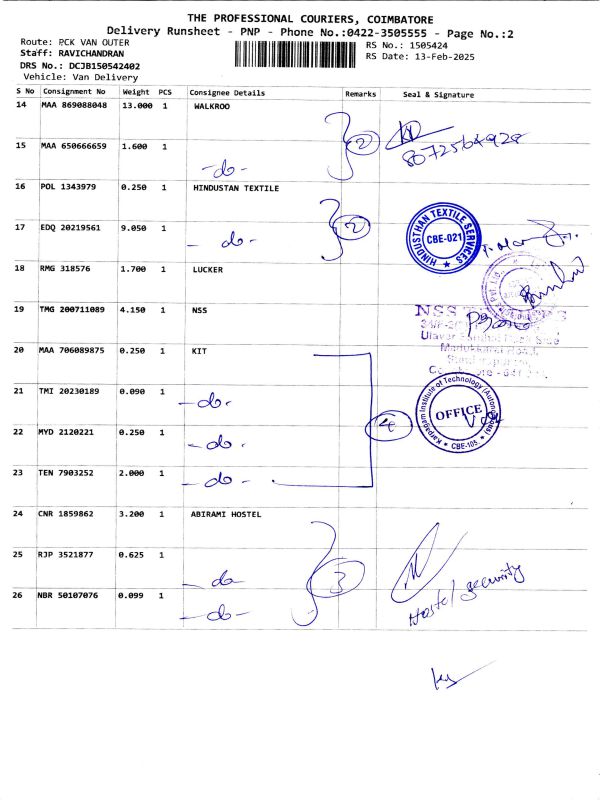 THE PROFESSIONAL COURIERS, COIMBATORE
Delivery Runsheet - PNP - Phone No.:0422-3505555 - Page No.:2
Route: PCK VAN OUTER
Staff: RAVICHANDRAN
DRS No.: DCJB150542402
Vehicle: Van Delivery
RS No.: 1505424
RS Date: 13-Feb-2025
S No Consignment No Weight PCS Consignee Details Remarks Seal & Signature
14 MAA 869088048 13.000 1 WALKROO
15 MAA 650666659 1.600 1 -do-
2
16 POL 1343979 0.250 1 HINDUSTAN TEXTILE
17 EDQ 20219561 9.050 1 -do-
2
HINDUSTHAN TEXTILE SERVICES
CBE-021
18 RMG 318576 1.700 1 LUCKER
19 TMG 200711089 4.150 1 NSS
NSS
20 MAA 706089875 0.250 1 KIT
21 TMI 20230189 0.090 1 -do-
22 MYD 2120221 0.250 1 -do-
23 TEN 7903252 2.000 1 -do-
4
Karpagam Institute of Technology (Autonomous)
OFFICE
CBE-105
24 CNR 1859862 3.200 1 ABIRAMI HOSTEL
25 RJP 3521877 0.625 1 -do
26 NBR 50107076 0.099 1 -do-
3
Hostel security